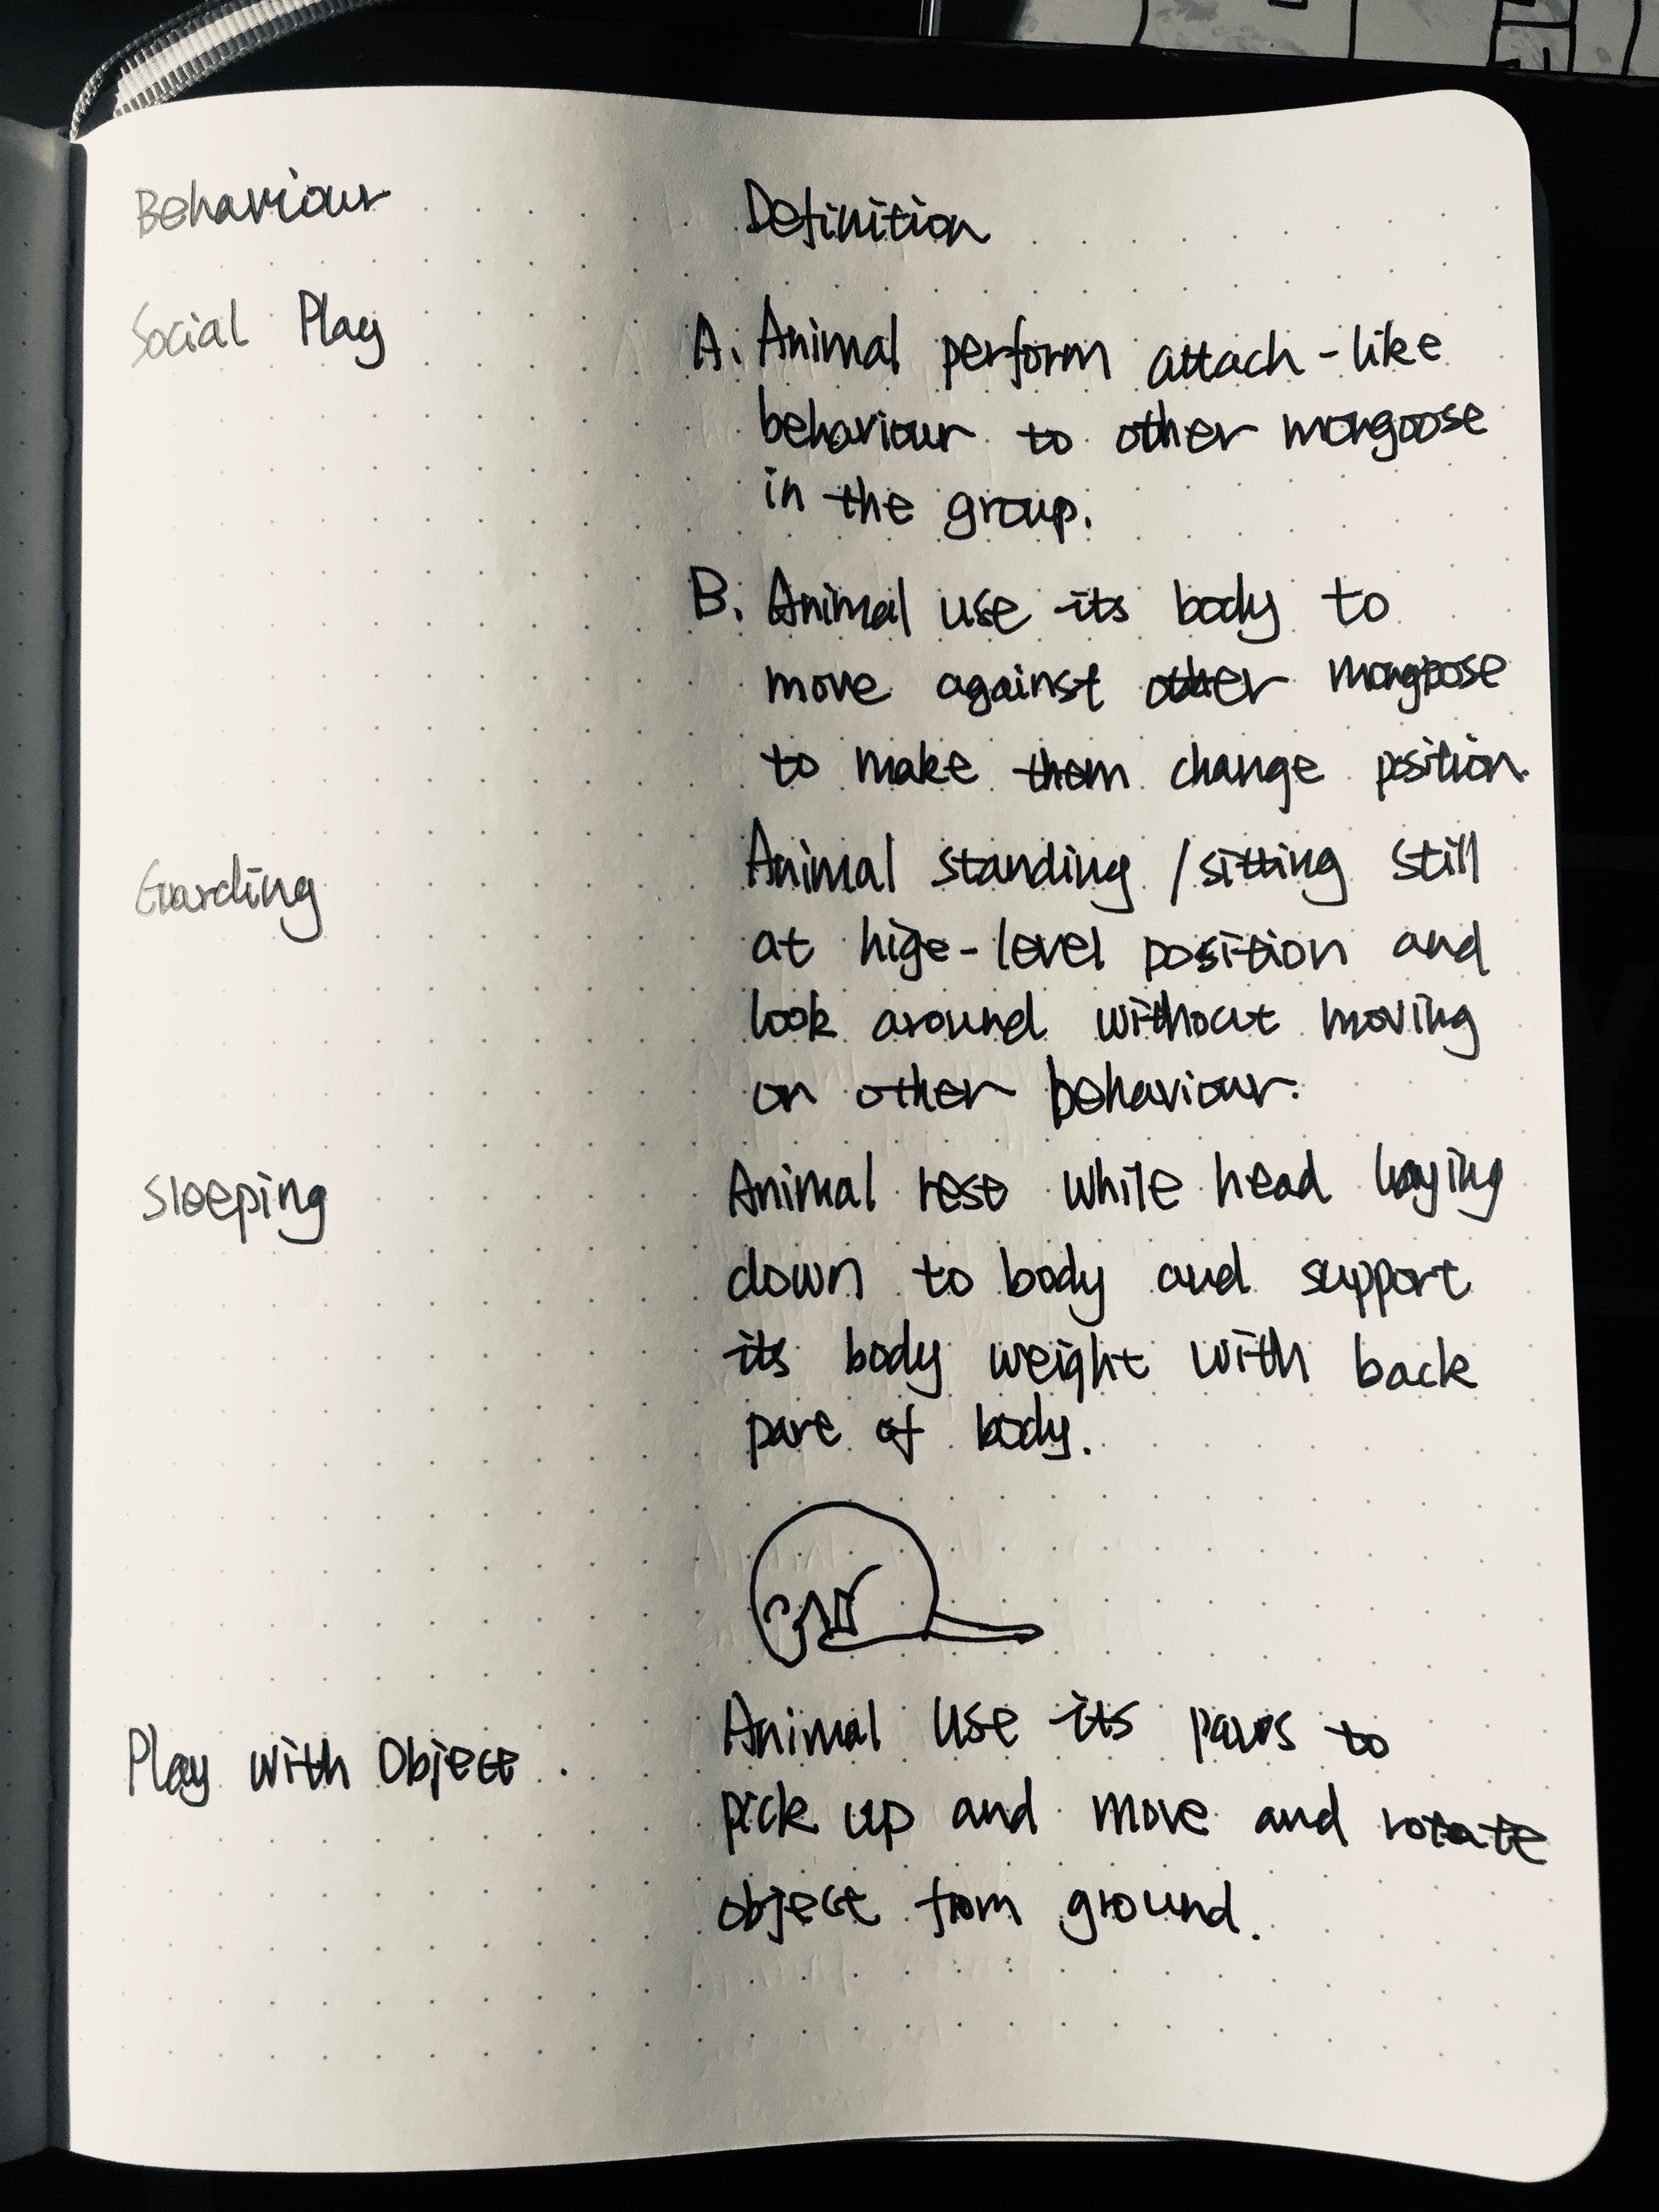 Behaviour Definition
Social Play A. Animal perform attach-like
behaviour to other mongoose
in the group.
B. Animal use its body to
move against other mongoose
to make them change position.
Guarding Animal standing /sitting still
at hige-level position and
look around without moving
or other behaviour.
Sleeping Animal rest while head laying
down to body and support
its body weight with back
part of body.
Play with Object. Animal use its paws to
pick up and move and rotate
object from ground.